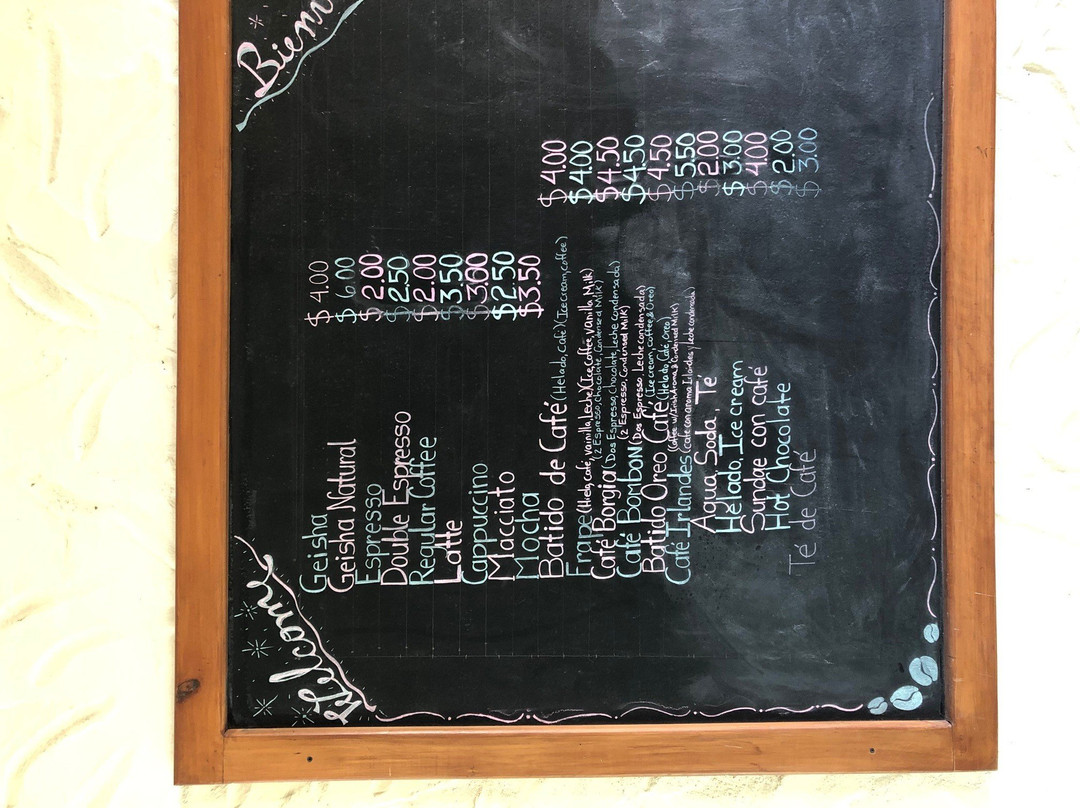 Welcome
Bien
Geisha $4.00
Geisha Natural $6.00
Espresso $2.00
Double Espresso $2.50
Regular Coffee $2.00
Latte $3.50
Cappuccino $3.00
Macciato $2.50
Mocha $3.50
Batido de Café (Helado, Café) (Ice cream, coffee) $4.00
Frape (Hielo, café, vainilla, Leche) (Ice, Coffee, Vanilla, Milk) $4.00
(2 Espresso, chocolate, Condensed Milk)
Café Borgia (Dos Espresso, Chocolate, Leche Condensada) $4.50
(2 Espresso, Condensed Milk)
Café Bombon (Dos Espresso, Leche condensada) $4.50
(Ice cream, coffee & Oreo)
Batido Oreo Café (Helado, Café, Oreo) $4.50
(Coffee w/ Irish Aroma & Condensed Milk)
Café Irlandes (café con aroma Irlandes y leche condensada) $5.50
Agua, Soda, Té $2.00
Helado, Ice cream $3.00
Sundae con café $4.00
Hot Chocolate $2.00
Té de Café $3.00